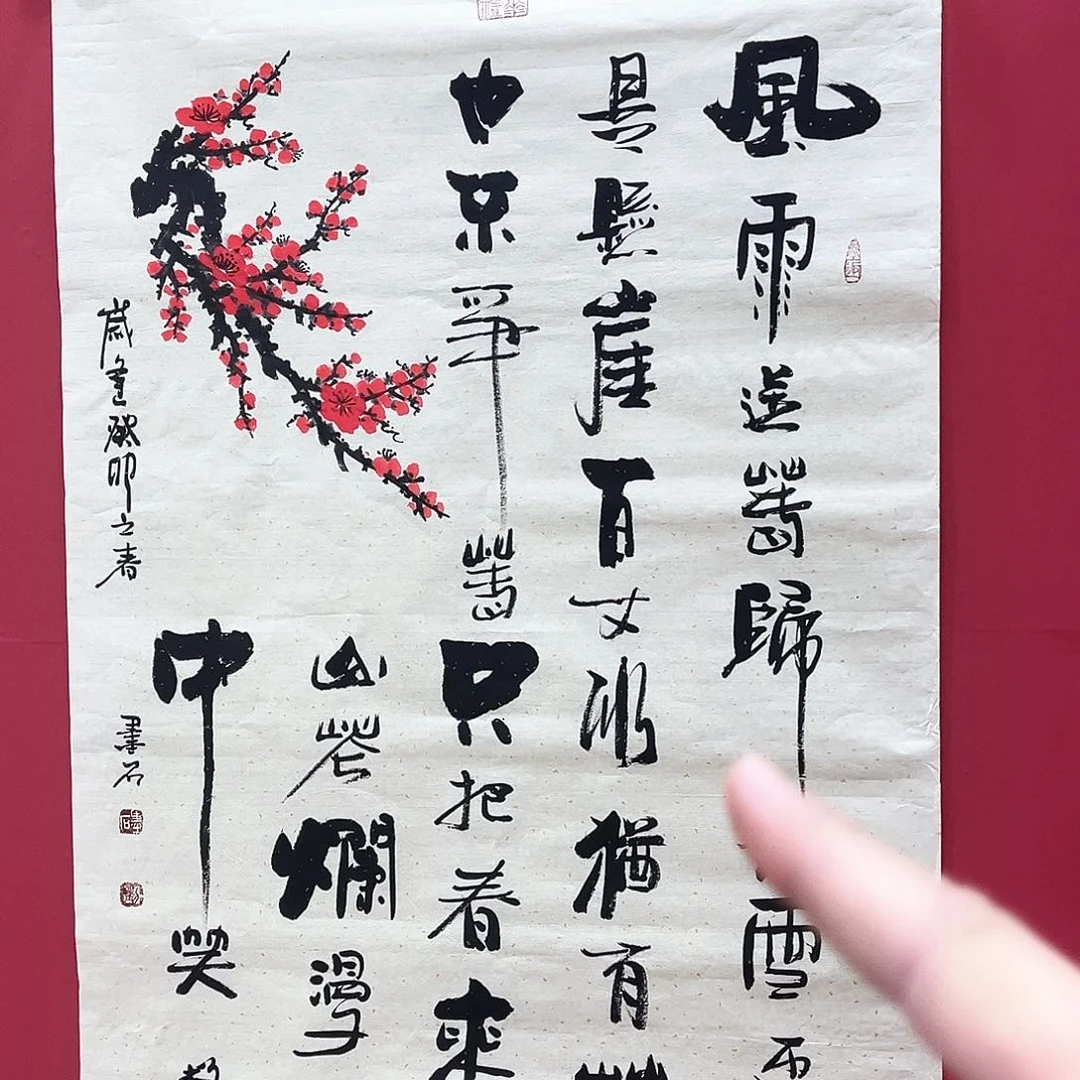 風雨送春歸雪
是懸崖百丈冰猶有
也不爭春只把春來
山花爛漫
中笑
歲逢癸卯之春
墨石